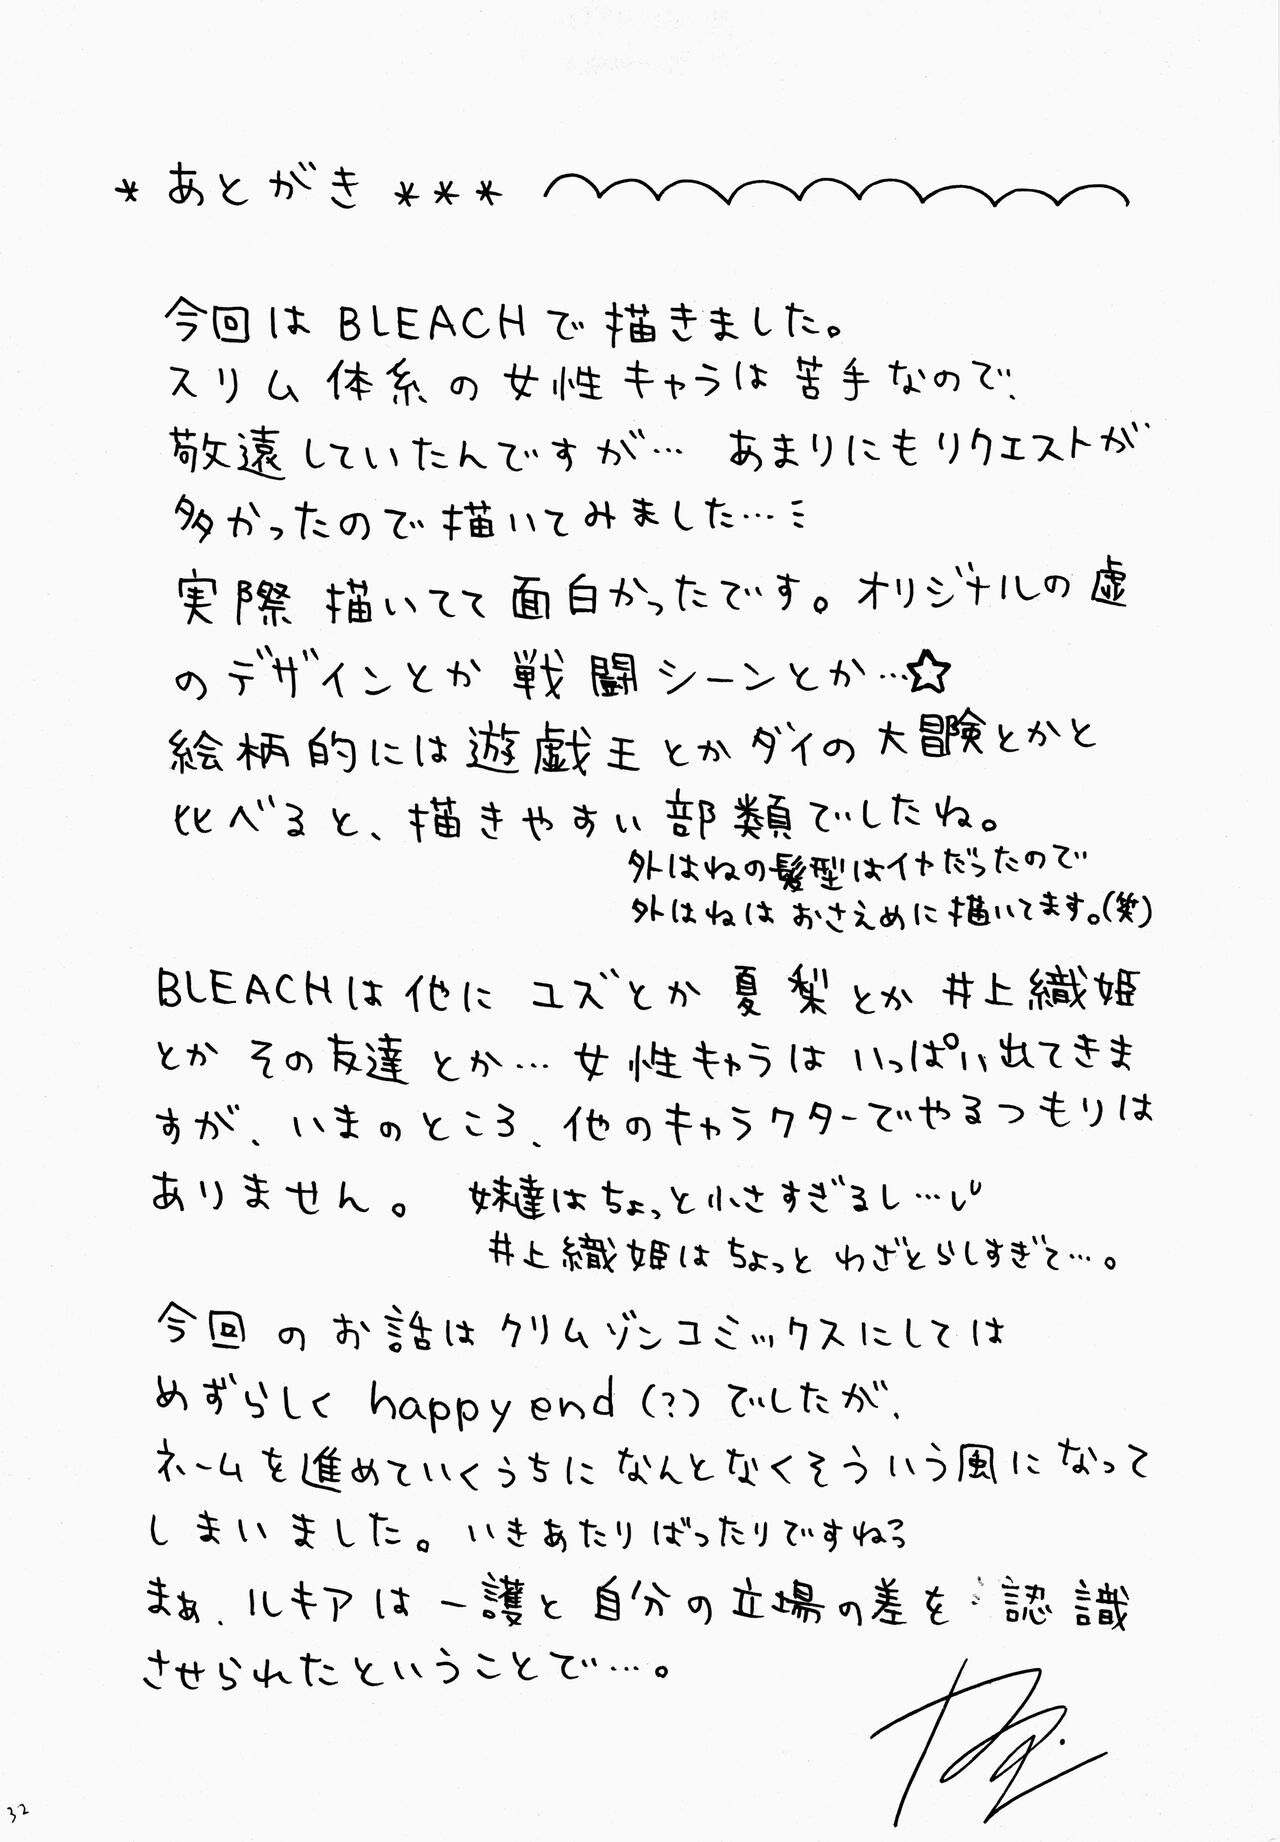 * あとがき ***
今回は BLEACHで描きました。
スリム体系の女性キャラは苦手なので、
敬遠していたんですが… あまりにもリクエストが
多かったので描いてみました…
実際描いてて面白かったです。オリジナルの虚
のデザインとか戦闘シーンとか…☆
絵柄的には遊戯王とかダイの大冒険とかと
比べると、描きやすい部類でしたね。
外はねの髪型はイヤだったので
外はねはおさえめに描いてます。(笑)
BLEACHは他に ユズとか 夏梨とか 井上織姫
とか その友達とか… 女性キャラは いっぱい出てきま
すが、いまのところ、他のキャラクターでやるつもりは
ありません。 妹達はちょっと小さすぎるし…
井上織姫はちょっと わざとらしすぎて…。
今回のお話はクリムゾンコミックスにしては
めずらしく happy end (?)でしたが、
ネームを進めていくうちになんとなくそういう風になって
しまいました。いきあたりばったりですねろ
まぁ、ルキアは一護と自分の立場の差を 認識
させられたということで…。
32